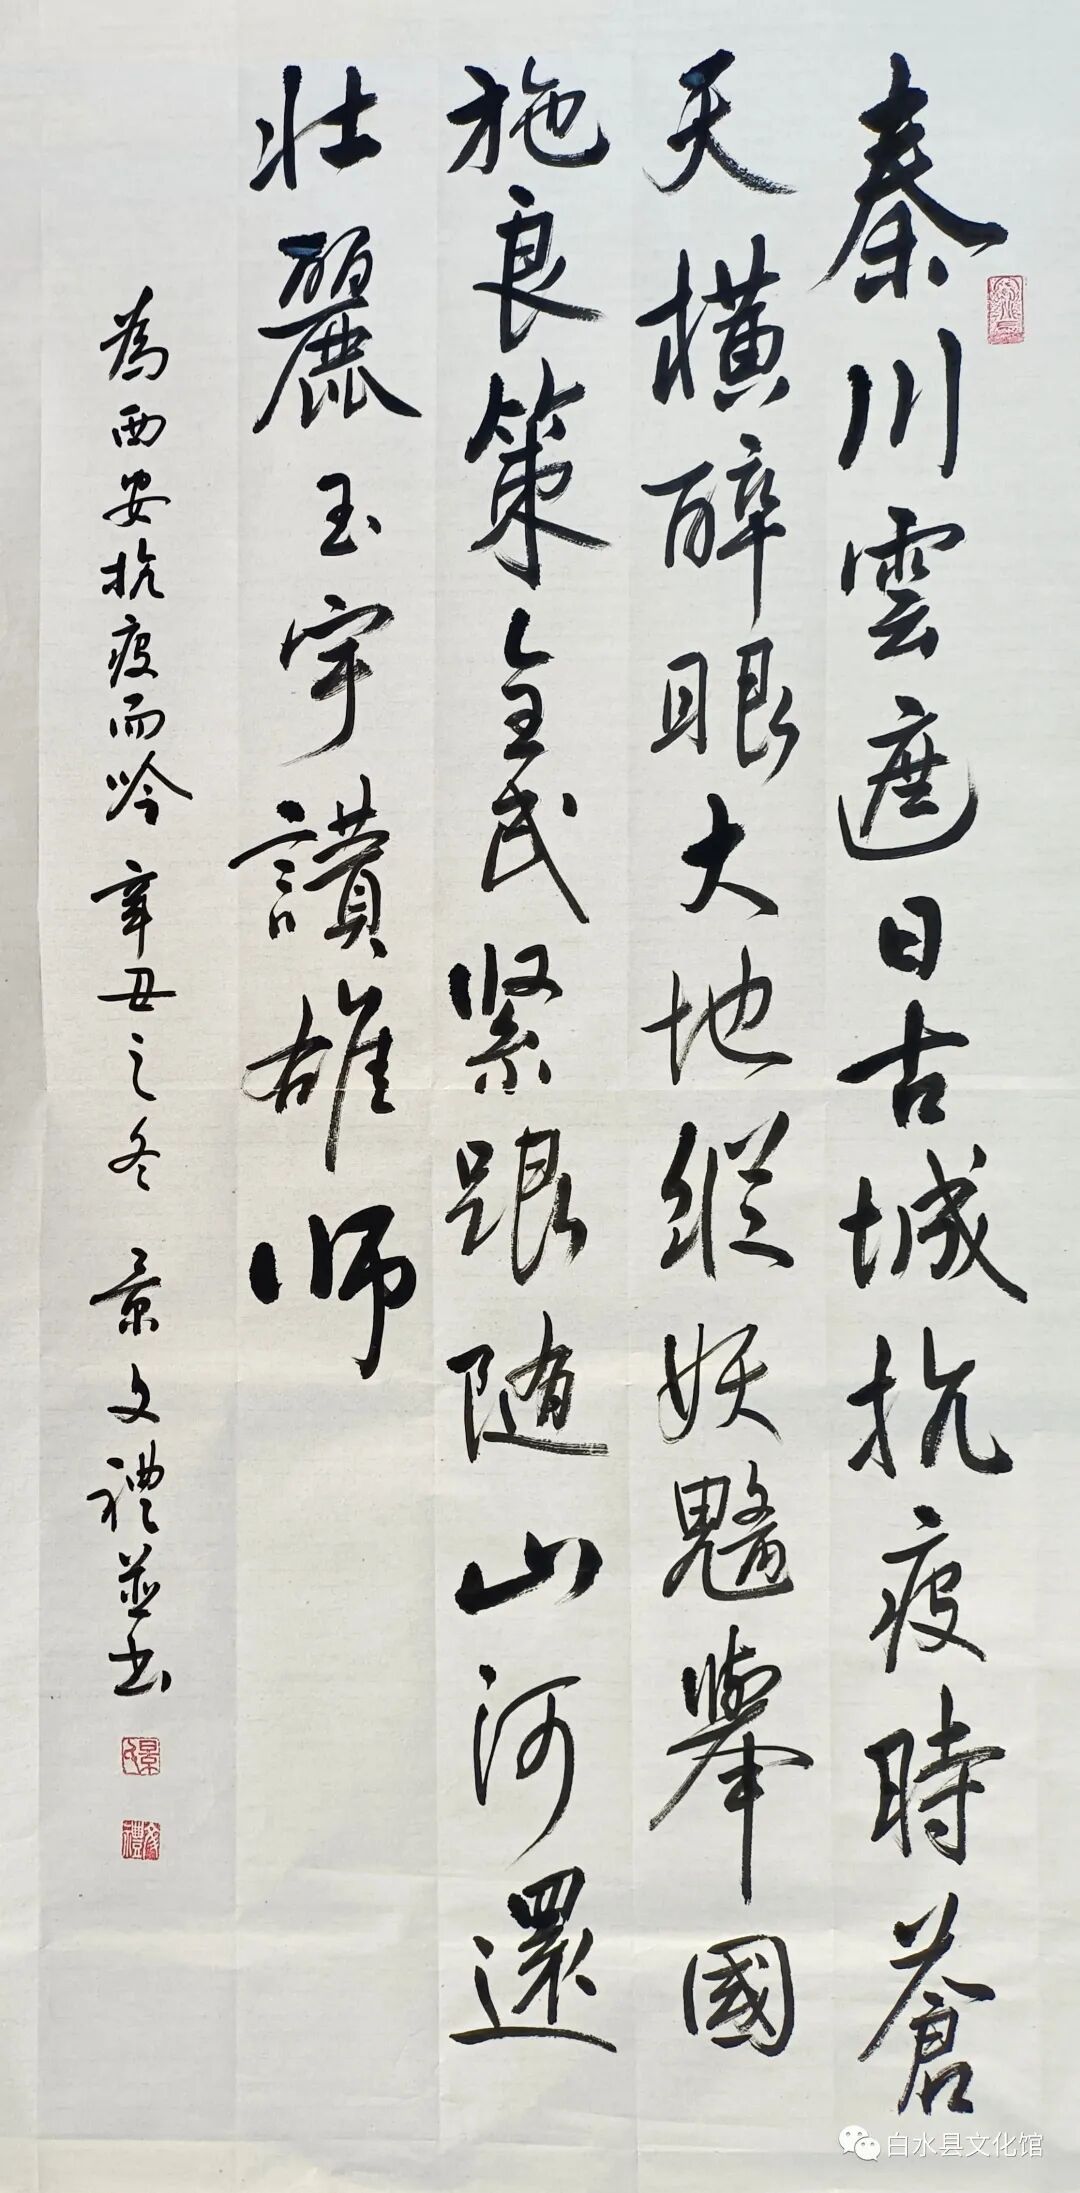 秦川雲遮日古城抗疫時蒼
天橫醉眼大地縱妖魑舉國
施良策全民紧跟随山河還
壮麗玉宇讚雄师
為西安抗疫而吟 辛丑之冬 景文禮並书
景氏
文禮
白水县文化馆